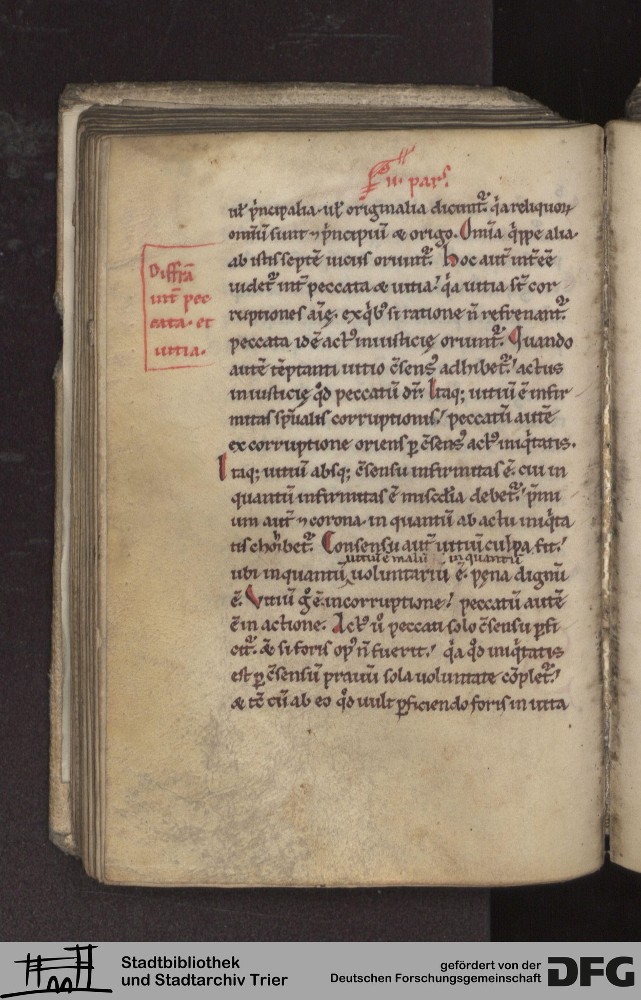 ii· parſ·
ul̄ p̄ncipalia· ul̄ originalia dicunt᷑· q̇a reliquoꝝ
om̄iū sunt ⁊ p̄ncipiū & origo· Om̄ia q̇ppe alia·
ab istis septē uiciis oriunt᷑· hoc aut̄ int̄ēē
uidet᷑ int̄ peccata & uitia· q̇a uitia st̄ cor
ruptiones aīę· ex q̇b; si ratione n̄ refrenant᷑·
peccata id ē act᷒ iniusticię oriunt᷑· Quando
autē tēptanti uitio c̄sens᷒ adhibet᷑· actus
iniusticię q̇d peccatū dr̄· Itaq; uitiū ē infir
mitas sp̄ualis corruptionis· peccatū autē
ex corruptione oriens ꝑ c̄sens᷒ act᷒ iniq̇tatis·
Itaq; uitiū absq; c̄sensu infirmitas ē· cui in
quantū infirmitas ē misc̄dia debet᷑· p̄mi
um aut̄ ⁊ corona· in quantū ab actu iniq̇ta
tis choibet᷑· Consensu aut̄ uitiū culpa fit·
uitiū ē malū in quantū
ubi in quantū uoluntariū ē· pęna dignū
ē· Vitiū g̊ ē in corruptione· peccatū autē
ē in actione· Act᷒ ů peccati solo c̄sensu ꝑfi
cit᷑· & si foris op᷒ n̄ fuerit· q̇a q̇d iniq̇tatis
est ꝑ c̄sensū prauū sola uoluntate cōplet᷑·
& tc̄ cū ab eo q̇d uult ꝑficiendo foris in uita
Diffr̄a
int̄ pec
cata· et
uitia·
Stadtbibliothek
und Stadtarchiv Trier
gefördert von der
Deutschen Forschungsgemeinschaft
DFG